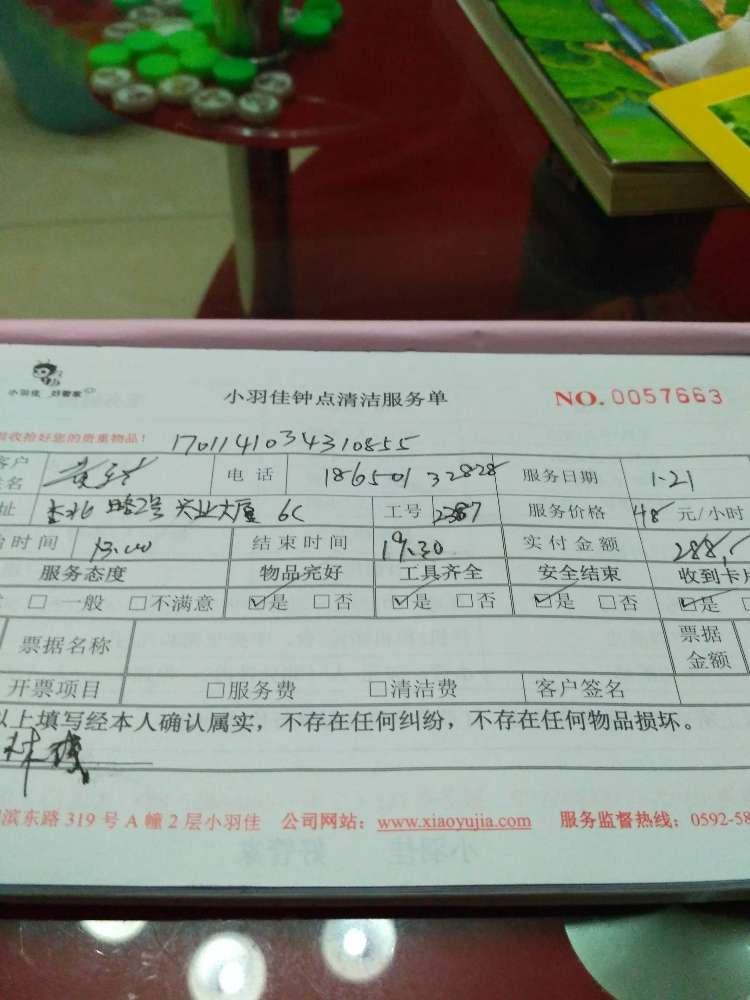 小羽佳 好管家
小羽佳钟点清洁服务单
NO.0057663
收拾好您的贵重物品！ 1701141034310855
客户签名 电话 18650132828 服务日期 1.21
址 路2号 兴业大厦 6C 工号 2387 服务价格 48元/小时
时间 13.00 结束时间 19.30 实付金额 288
服务态度 物品完好 工具齐全 安全结束 收到卡片
□一般 □不满意 ☑是 □否 ☑是 □否 ☑是 □否 ☑是
票据名称 票据金额
开票项目 □服务费 □清洁费 客户签名
以上填写经本人确认属实，不存在任何纠纷，不存在任何物品损坏。
滨东路319号A幢2层小羽佳 公司网站：www.xiaoyujia.com 服务监督热线：0592-58